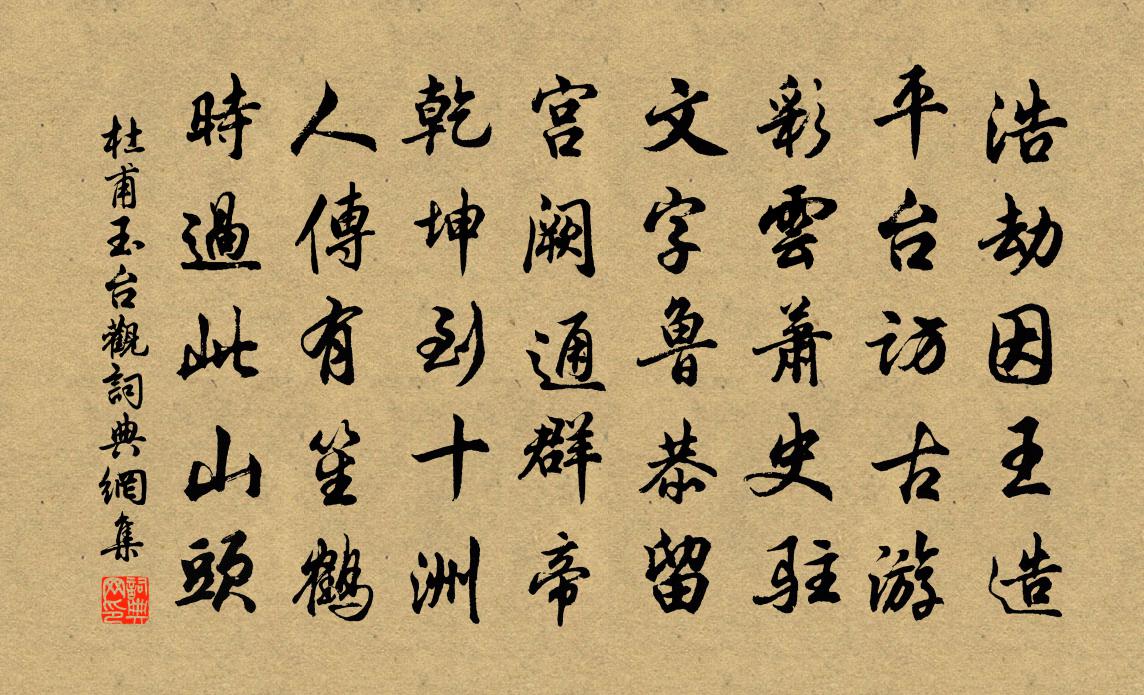 浩劫因王造
平台访古游
彩雲蕭史驻
文字鲁恭留
宫阙通群帝
乾坤到十洲
人傳有笙鶴
時過此山頭
杜甫玉台觀詞典網集
詞典网印